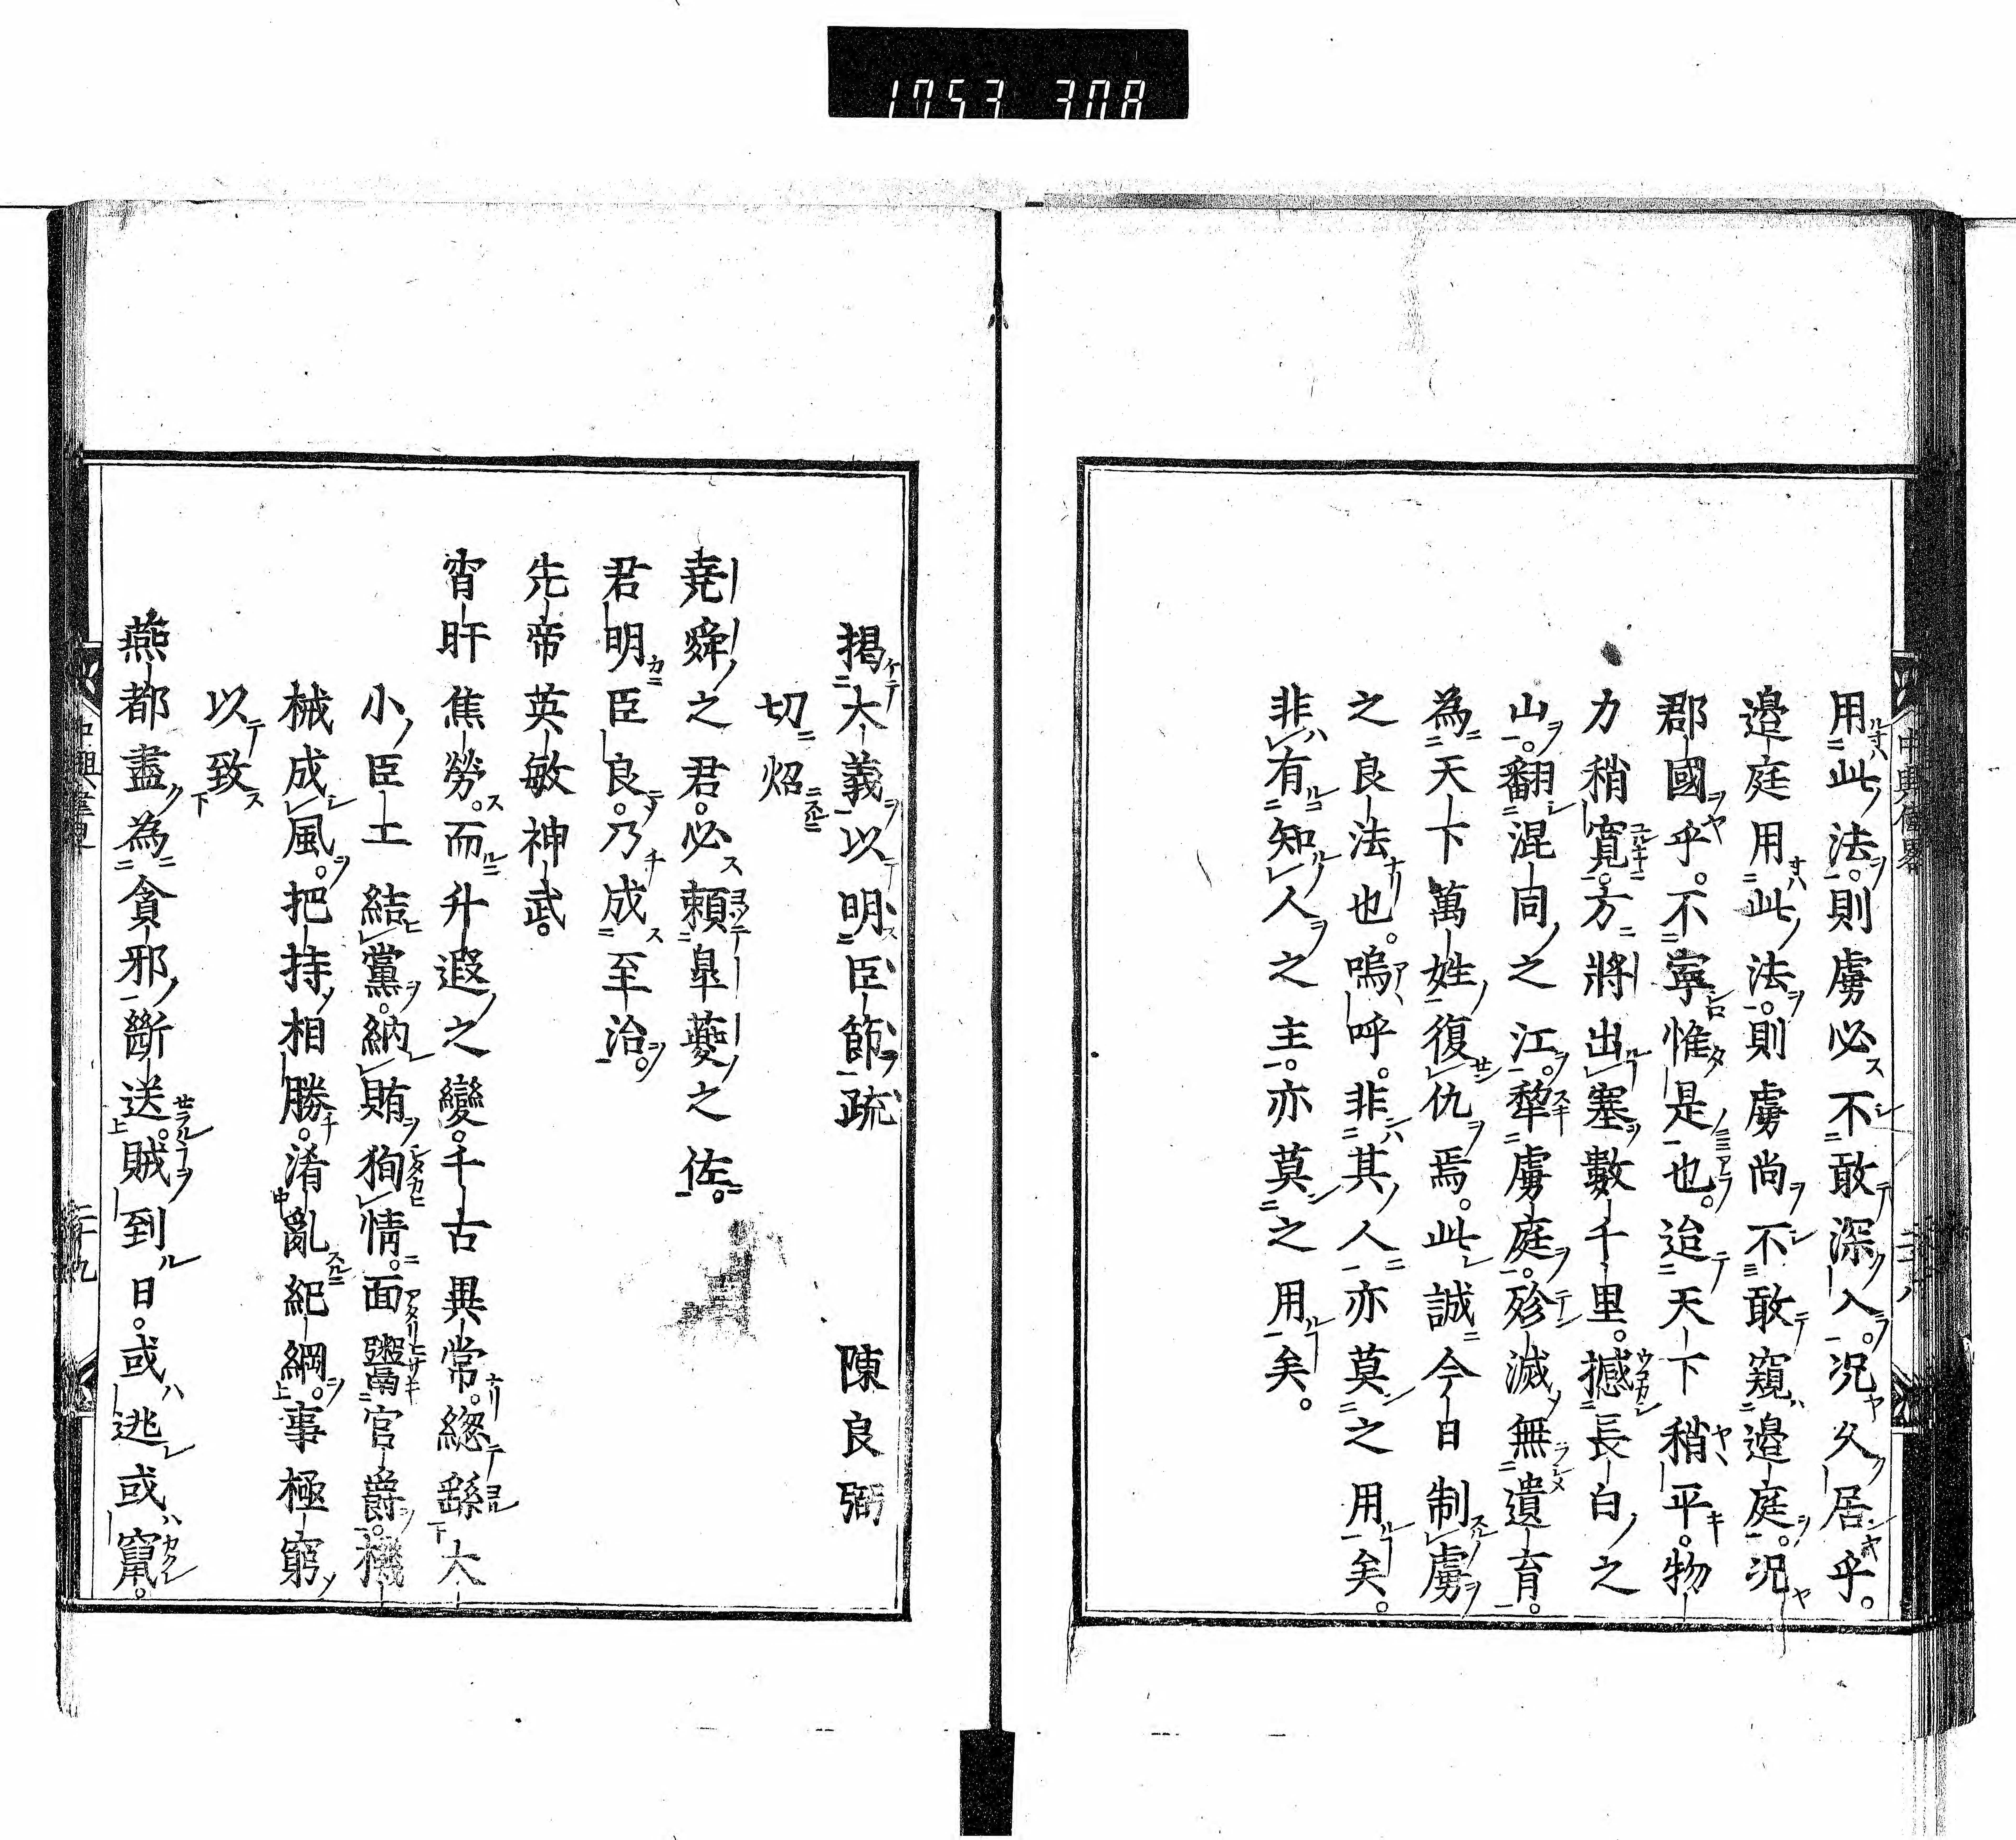 1753 308
用此法。則虜必不敢深入。況久居乎。
邉庭用此法。則虜尚不敢窺邉庭。況
郡國乎。不寧惟是也。迨天下稍平。物
力稍寛。方將出塞數千里。撼長白之
山。翻混同之江。犂虜庭。殄滅無遺育。
為天下萬姓復仇焉。此誠今日制虜
之良法也。嗚呼。非其人亦莫之用矣。
非有知人之主。亦莫之用矣。
揭大義以明臣節疏 陳良弼
切炤
堯舜之君。必賴臯夔之佐。
君明臣良。乃成至治。
先帝英敏神武。
宵旰焦勞。而升遐之變。千古異常。緫繇大
小臣工結黨。納賄狥情。面鬻官爵。機
械成風。把持相勝。淆亂紀綱。事極窮
以致
燕都盡為貪邪斷送。賊到日。或逃或竄。